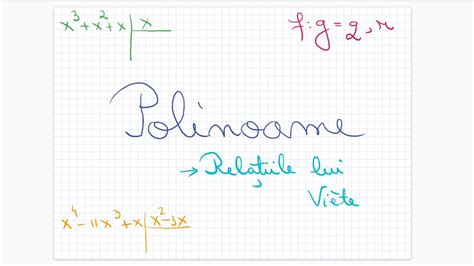 x³+x²+x | x
f:g=q,r
Polinoame
→ Relațiile lui
Viète
x⁴-11x³+x | x²-3x